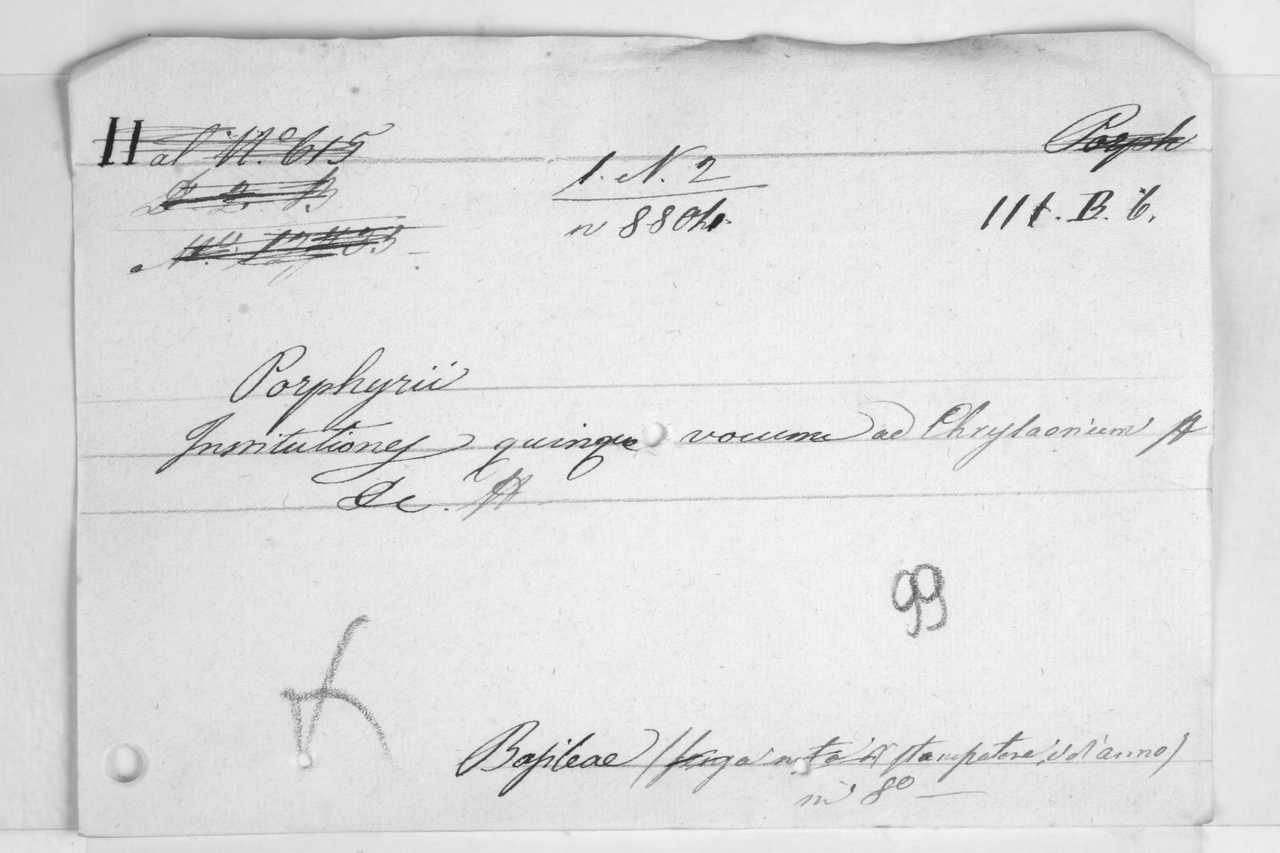 al N.o 615
1. N. 2
Porph
118. B. 6.
Porphyrii
Institutiones quinque vocum ad Chrysaorium
&c.
99
Basileae (senza nota di stampatore, e d'anno)
in 8o